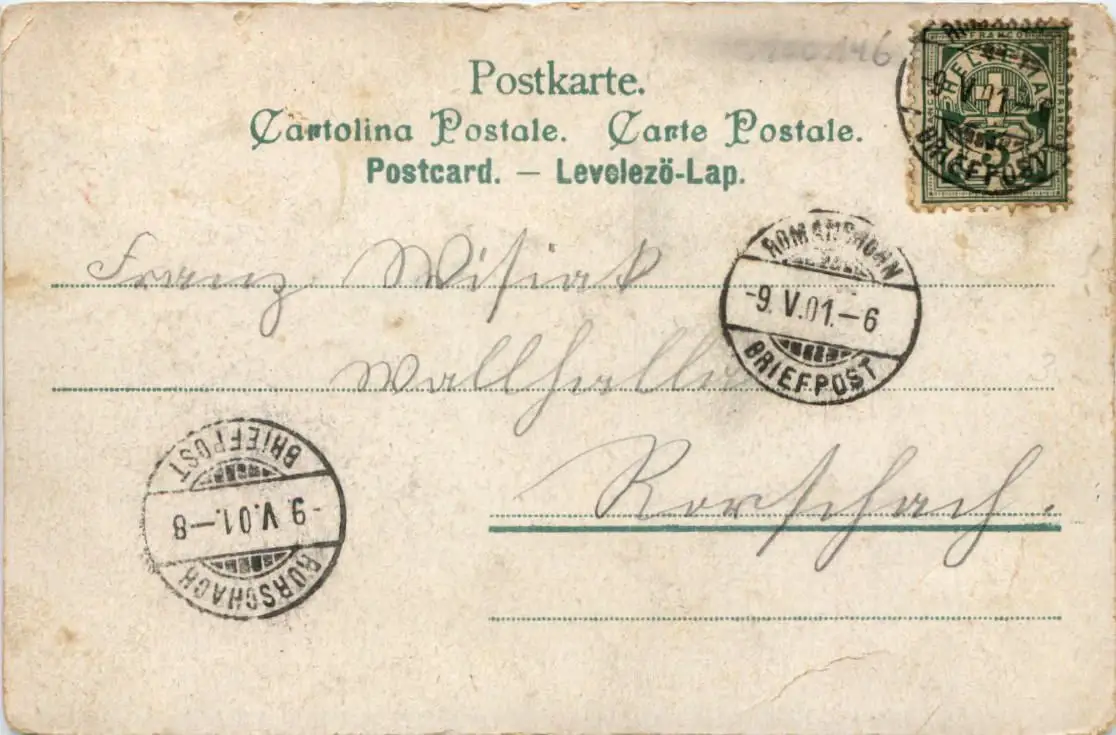 146
Postkarte.
Cartolina Postale. Carte Postale.
Postcard. — Levelezö-Lap.
FRANCO
HELVETIA
5
-9. V. 01.
BRIEFPOST
ROMANSHORN
-9. V. 01.—6
BRIEFPOST
Franz Wisiak
Wallhalla
Rorschach.
BRIEFPOST
-9. V. 01.—8
RORSCHACH